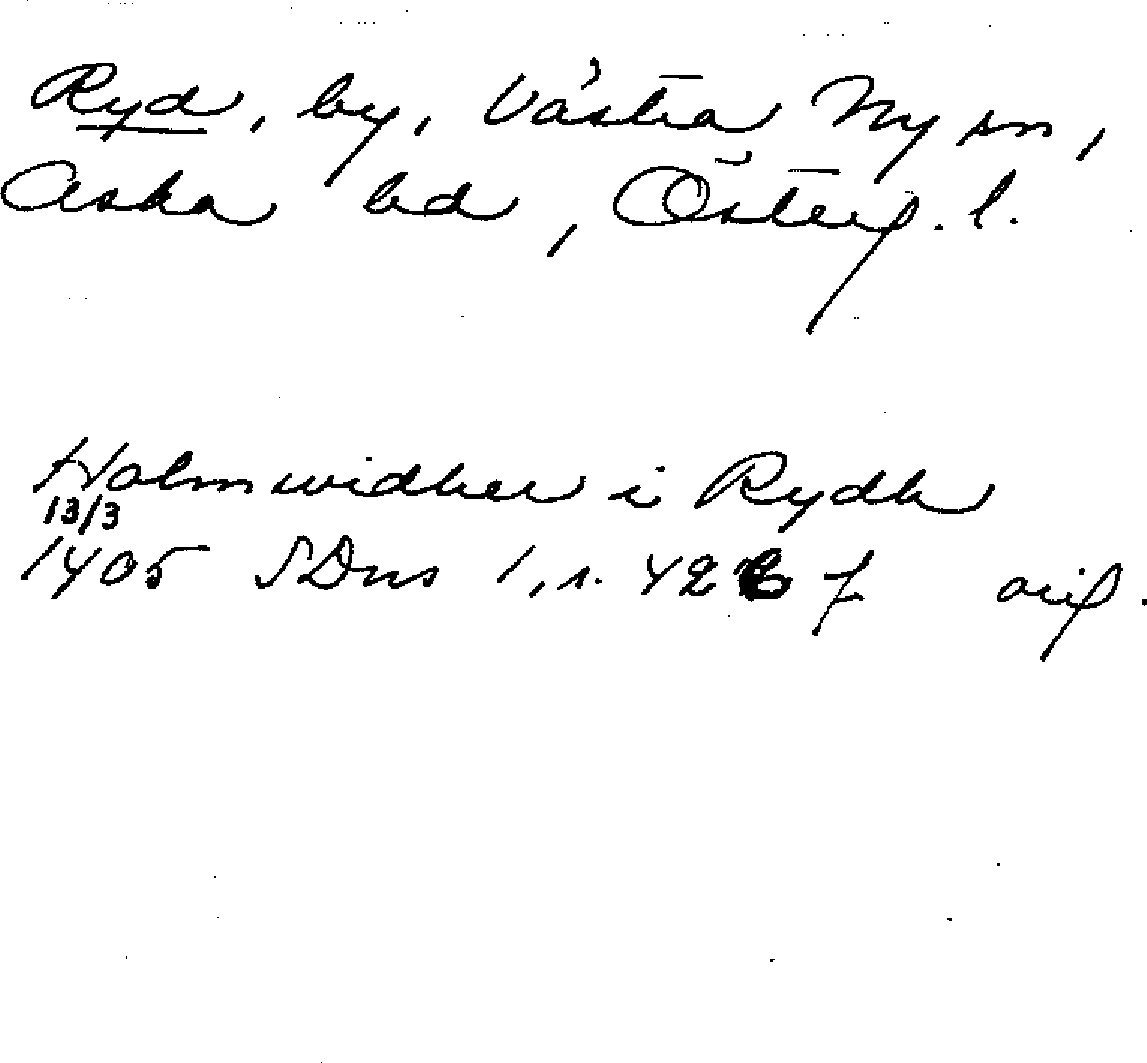 Ryd, by, Västra Ny sn,
Aska hd, Österg. l.
Holmwidher i Rydh
13/3
1405 SDns 1, s. 428 f orig.